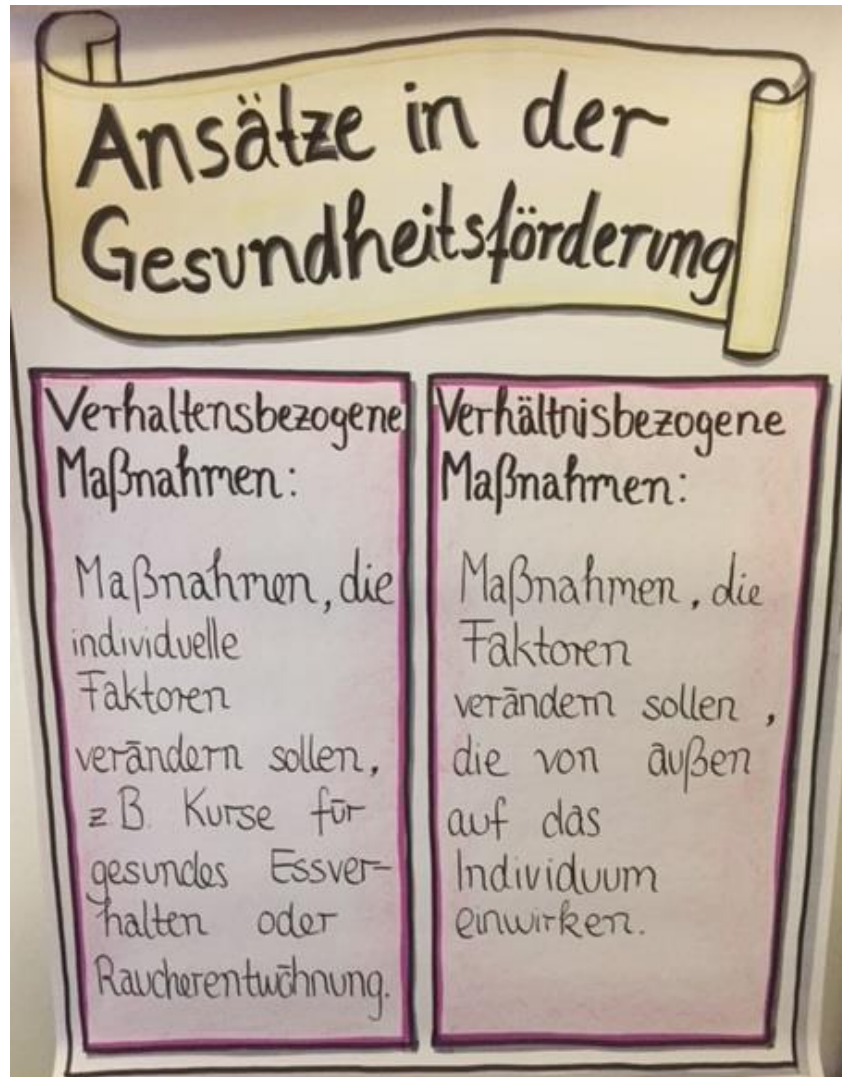 Ansätze in der
Gesundheitsförderung
Verhaltensbezogene
Maßnahmen:
Maßnahmen, die
individuelle
Faktoren
verändern sollen,
z B. Kurse für
gesundes Essver-
halten oder
Raucherentwöhnung.
Verhältnisbezogene
Maßnahmen:
Maßnahmen, die
Faktoren
verändern sollen,
die von außen
auf das
Individuum
einwirken.